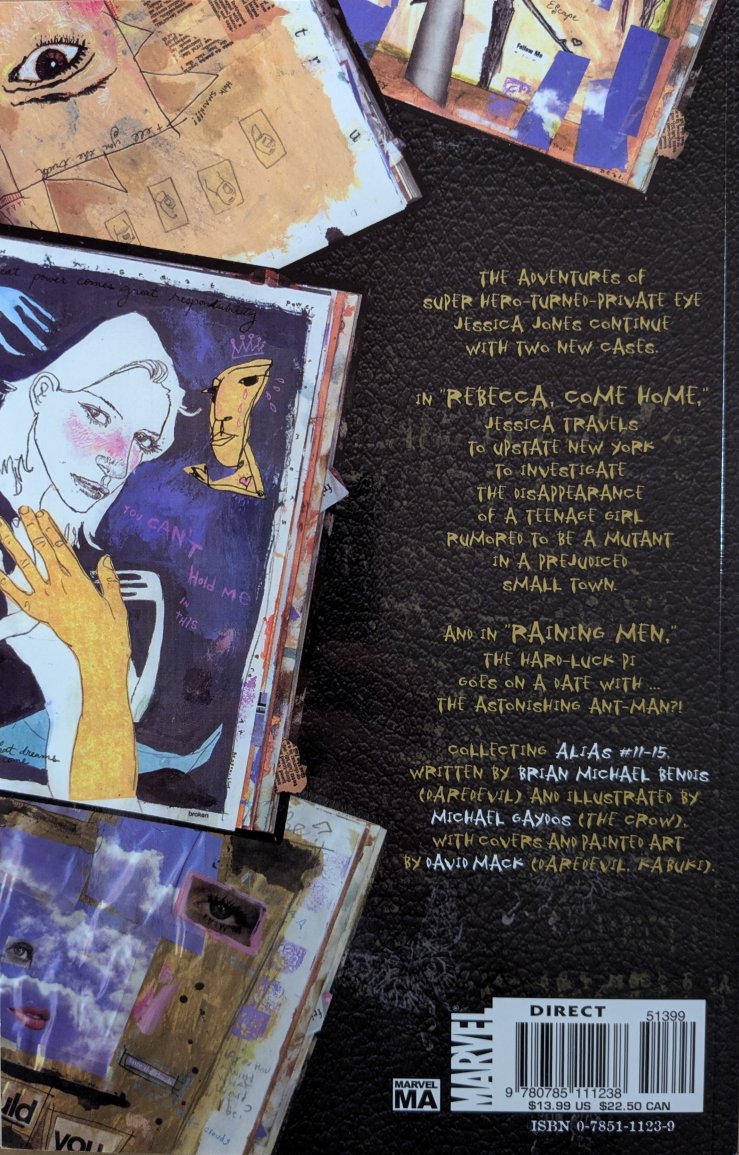 Escape
Follow Me
t r u
tell you the truth
great power comes great responsibility
power
THE ADVENTURES OF
SUPER HERO-TURNED-PRIVATE EYE
JESSICA JONES CONTINUE
WITH TWO NEW CASES.
IN "REBECCA, COME HOME,"
JESSICA TRAVELS
TO UPSTATE NEW YORK
TO INVESTIGATE
THE DISAPPEARANCE
OF A TEENAGE GIRL
RUMORED TO BE A MUTANT
IN A PREJUDICED
SMALL TOWN.
YOU CAN'T
HOLD ME
IN
THIS
AND IN "RAINING MEN,"
THE HARD-LUCK PI
GOES ON A DATE WITH ...
THE ASTONISHING ANT-MAN?!
what dreams
come
broken
COLLECTING ALIAS #11-15.
WRITTEN BY BRIAN MICHAEL BENDIS
(DAREDEVIL) AND ILLUSTRATED BY
MICHAEL GAYDOS (THE CROW).
WITH COVERS AND PAINTED ART
BY DAVID MACK (DAREDEVIL, KABUKI).
uld
you
MARVEL
MA
MARVEL
DIRECT
51399
9 780785 111238
$13.99 US $22.50 CAN
ISBN 0-7851-1123-9